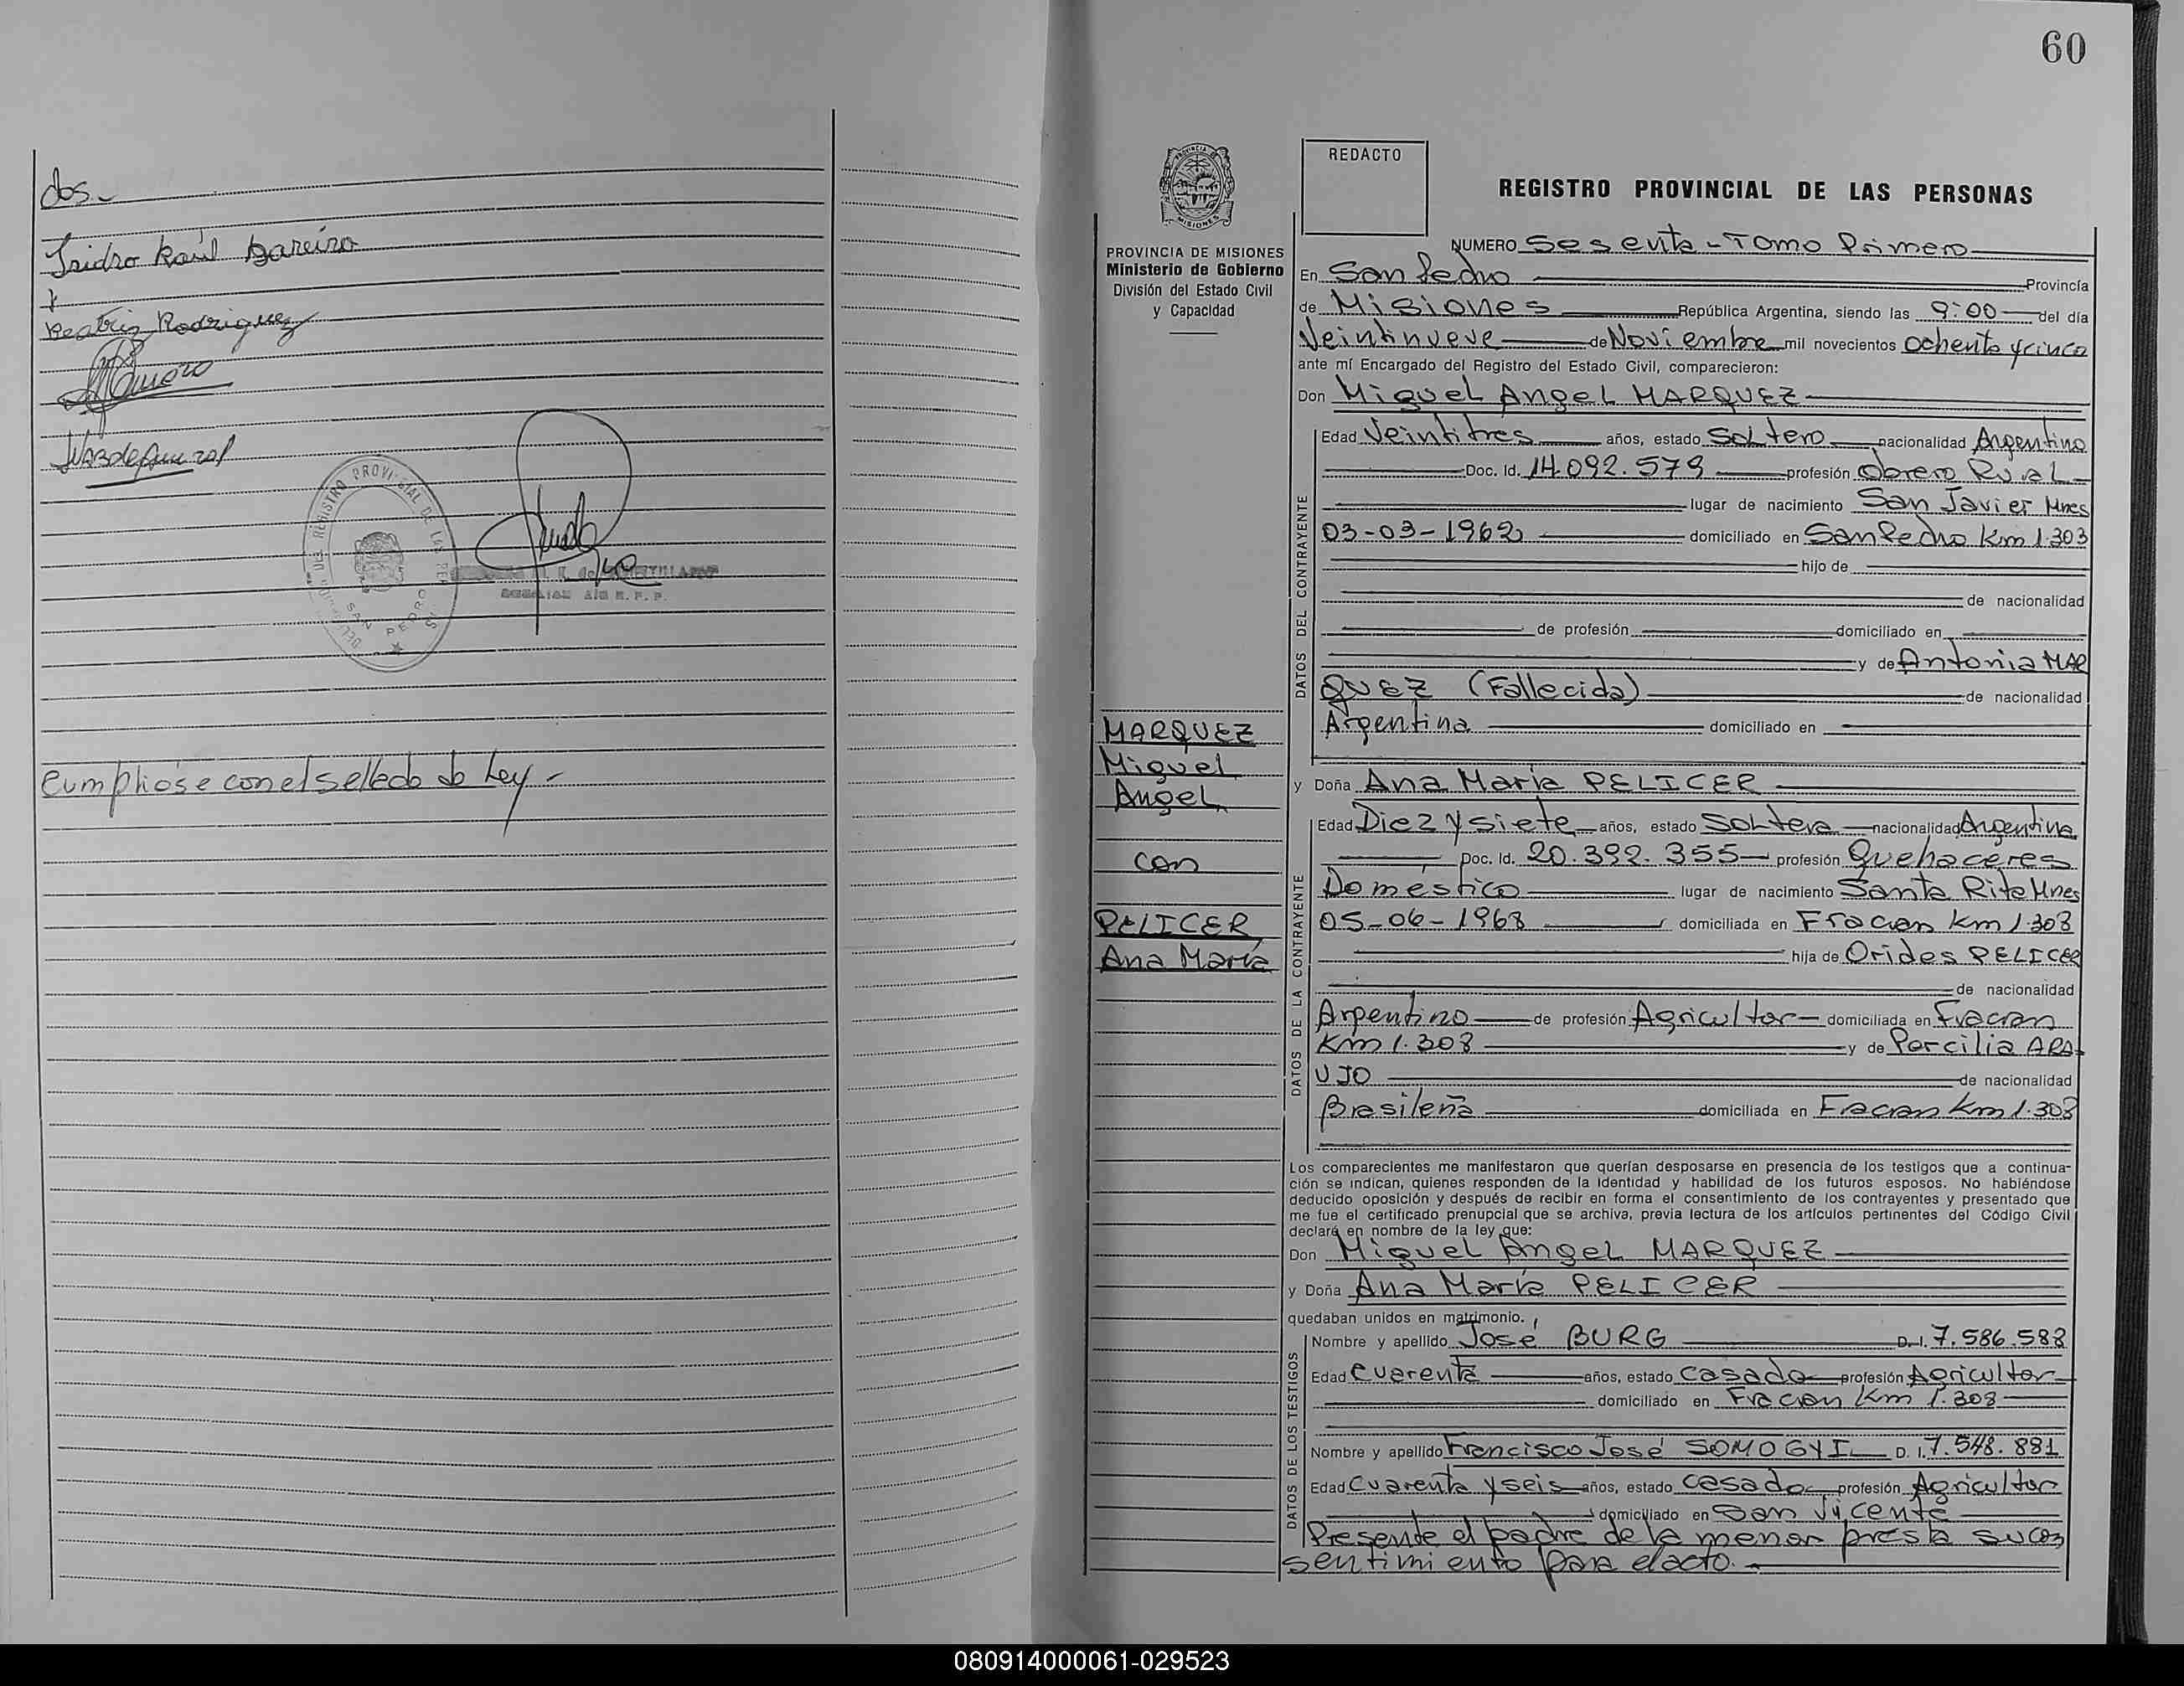 dos.-
Isidro Raúl Bareiro
y
Beatriz Rodriguez
REGISTRO PROVINCIAL DE LAS PERSONAS
SAN PEDRO
Cumplióse con el sellado de Ley.-
60
REDACTO
PROVINCIA DE MISIONES
REGISTRO PROVINCIAL DE LAS PERSONAS
PROVINCIA DE MISIONES
Ministerio de Gobierno
División del Estado Civil
y Capacidad
MARQUEZ
Miguel
Angel
con
PELICER
Ana María
NUMERO Sesenta - Tomo Primero
En San Pedro Provincia
de Misiones República Argentina, siendo las 9:00 del día
Veintinueve de Noviembre mil novecientos ochenta y cinco
ante mí Encargado del Registro del Estado Civil, comparecieron:
Don Miguel Angel MARQUEZ
DATOS DEL CONTRAYENTE
Edad Veintitres años, estado Soltero nacionalidad Argentino
Doc. Id. 14.092.579 profesión Obrero Rural
lugar de nacimiento San Javier Mnes
03-03-1962 domiciliado en San Pedro Km 1.303
hijo de
de nacionalidad
de profesión domiciliado en
y de Antonia MAR
QUEZ (Fallecida) de nacionalidad
Argentina domiciliado en
y Doña Ana María PELICER
DATOS DE LA CONTRAYENTE
Edad Diez y siete años, estado Soltera nacionalidad Argentina
Doc. Id. 20.392.355 profesión Quehaceres
Doméstico lugar de nacimiento Santa Rita Mnes
05-06-1968 domiciliada en Fracran Km 1.308
hija de Orides PELICER
de nacionalidad
Argentino de profesión Agricultor domiciliada en Fracran
Km 1.308 y de Porcilia ARA-
UJO de nacionalidad
Brasileña domiciliada en Fracran Km 1.308
Los comparecientes me manifestaron que querían desposarse en presencia de los testigos que a continua-
ción se indican, quienes responden de la identidad y habilidad de los futuros esposos. No habiéndose
deducido oposición y después de recibir en forma el consentimiento de los contrayentes y presentado que
me fue el certificado prenupcial que se archiva, previa lectura de los artículos pertinentes del Código Civil
declaré en nombre de la ley que:
Don Miguel Angel MARQUEZ
y Doña Ana María PELICER
quedaban unidos en matrimonio.
DATOS DE LOS TESTIGOS
Nombre y apellido José BURG D.I. 7.586.588
Edad Cuarenta años, estado Casado profesión Agricultor
domiciliado en Fracran Km 1.308
Nombre y apellido Francisco José SOMOGYI D. I. 7.548.881
Edad Cuarenta y seis años, estado Casado profesión Agricultor
domiciliado en San Vicente
Presente el padre de la menor presta su con
sentimiento para el acto.
080914000061-029523